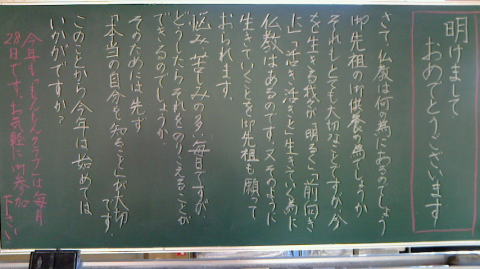 明けまして
おめでとうございます
さて、仏教は何の為にあるのでしょう
御先祖の御供養の為でしょうか
それもとても大切なことですが、今
を生きる我々が明るく、「前向き
に」「活き活きと」生きていく為に
仏教はあるのです。又そのように
生きていくことを御先祖も願って
おられます。
悩み、苦しみの多い毎日ですが
どうしたらそれをのりこえることが
できるのでしょうか。
そのためには先ず
「本当の自分を知ること」が大切
です。
このことから今年は始めては
いかがですか？
今年も「もんもんクラブ」は毎月
28日です。お気軽に御参加
下さい